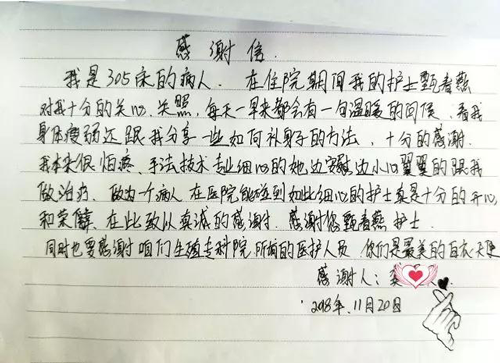 感谢信.
我是305床的病人. 在住院期间我的护士甄春燕
对我十分的关心,关照,每天一早来都会有一句温暖的问候,看我
身体瘦弱还跟我分享一些如何补身子的方法,十分的感谢.
我本来很怕疼,手法技术专业细心的她边安慰边小心翼翼的跟我
做治疗. 做为一个病人在医院能碰到如此细心的护士真是十分的开心
和荣幸,在此致以真诚的感谢!感谢您甄春燕护士.
同时也要感谢咱们生殖专科院所有的医护人员,你们是最美的白衣天使
感谢人:
2018年.11月20日